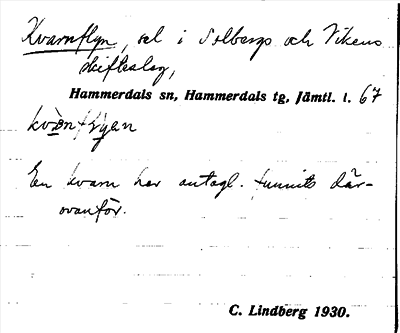 Kvarnflyn, sel i Solbergs och Vikens
skifteslag,
Hammerdals sn, Hammerdals tg, Jämtl. l. 67
En kvarn har antagl. funnits där-
ovanför.
C. Lindberg 1930.